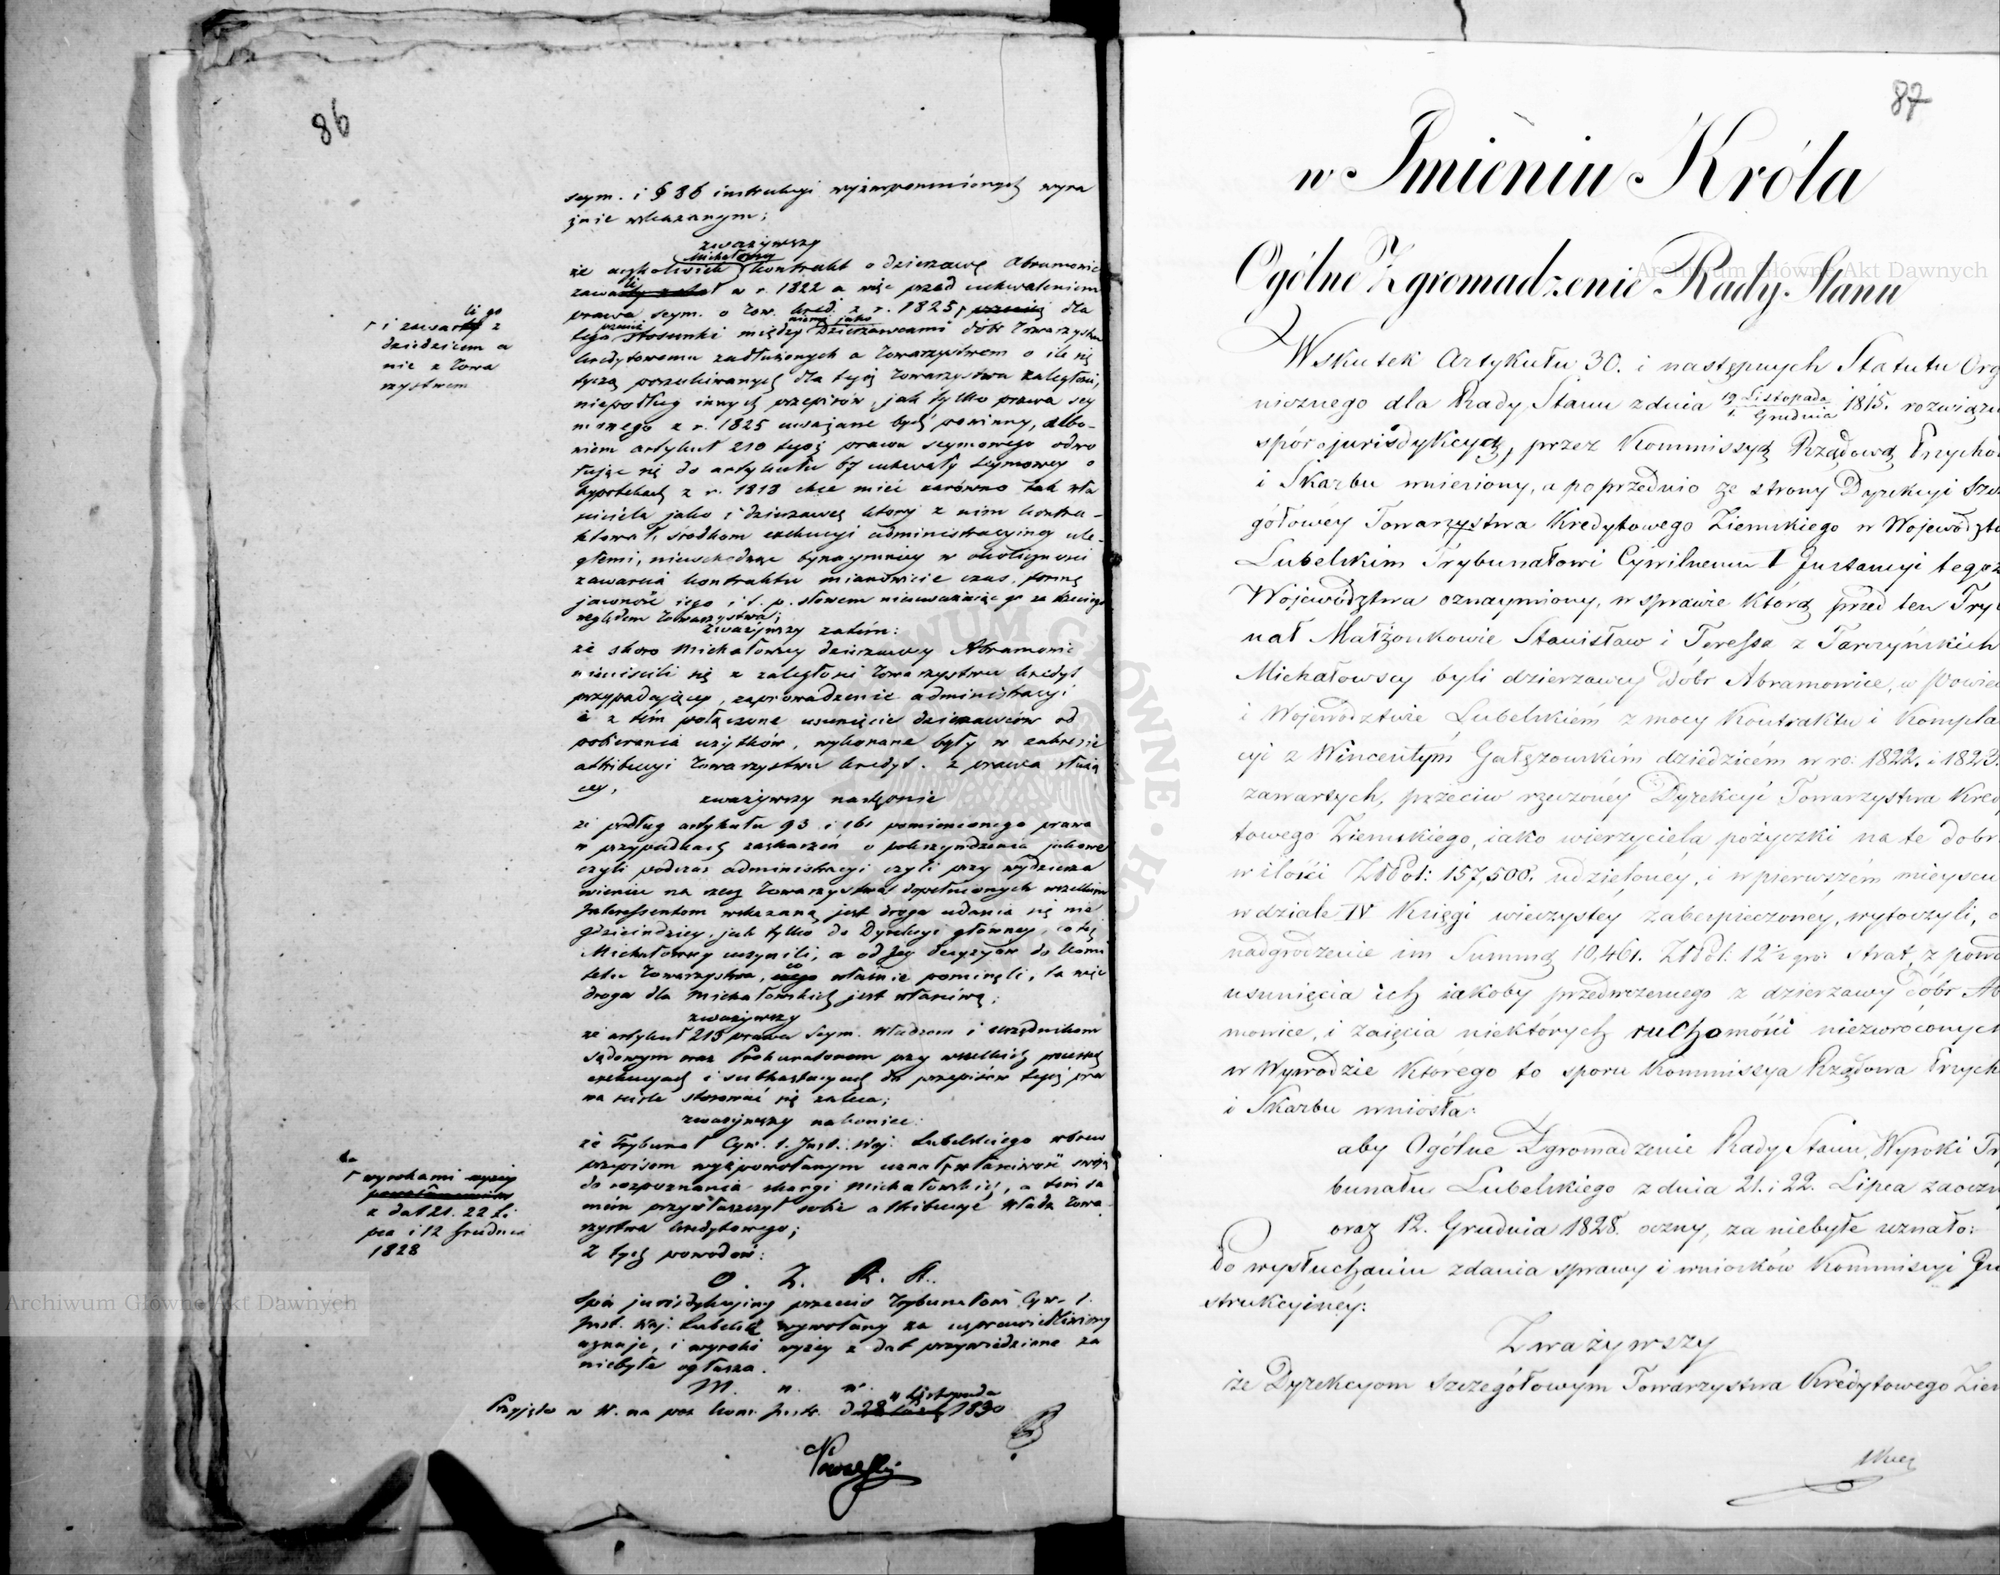 86
seym. i § 86 instrukcyi wyżwspomnionych wyra
źnie wskazanym;
zważywszy
że aczkolwiek Michałowscy kontrakt o dzierzawę Abramowic
zawarli w r. 1822 a więc przed uchwaleniem
prawa seym. o Tow. kred. z r. 1825, dla
tego stosunki między niemi jako Dzierzawcami dóbr Towarzystwu
kredytowemu zadłużonych a Towarzystwem o ile się
tyczą poszukiwanych dla tejż Towarzystwa zaległości,
niepodług innych przepisów, jak tylko prawa sey
mowego z r. 1825 uważane być powinny, albo-
wiem artykuł 210 tegoż prawa seymowego odwo
łując się do artykułu 67 uchwały seymowey o
hypotekach z r. 1818 chce mieć zarówno tak wła
ściciela jako i dzierzawcę ktory z nim kontra-
ktował, środkom exekucyi administracyiney ule-
głemi, niewchodząc bynaymniey w okoliczności
zawarcia kontraktu mianowicie czas, formę
jawność iego i t. p. słowem nieuważając go za trzeciego
względem Towarzystwa;
Zważywszy zatém:
że skoro Michałowscy dzierzawcy Abramowic
nieuiścili się z zaległości Towarzystwu kredyt
przypadającey, zaprowadzenie administracyi
a z tém połączone usunięcie dzierzawców od
pobierania użytków, wykonane były w zakresie
attribucyi Towarzystwu kredyt. z prawa służą
cey,
zważywszy następnie
że podług artykułu 93 i 161 pomienionego prawa
w przypadkach zaskarzeń o pokrzywdzenia jakowe
czyli podczas administracyi czyli przy wydzierza
wieniu na rzecz Towarzystwa dopełnionych wszelkim
Interessentom wskazaną jest droga udania się nie
gdzieindziey, jak tylko do Dyrekcyi główney, co też
Michałowscy uczynili, a od jey decyzyów do Komi
tetu Towarzystwa, co właśnie pominęli, ta więc
droga dla Michałowskich jest właściwą;
zważywszy
że artykuł 215 prawa Seym. Władzom i urzędnikom
Sądowym oraz Prokuratorom przy wszelkich processach
exekucyach i subhastacyach do przepisów tegoż pra
wa scisle stosować się zaleca;
zważywszy nakoniec:
że Trybunał Cyw. 1. Inst. Woj: Lubelskiego wbrew
przepisom wyżpowołanym uznał właściwość swoją
do rozpoznania skargi Michałowskich, a tém sa
mém przywłaszczył sobie attribucyé Władz Towa
rzystwa kredytowego;
Z tych powodów:
O. Z. R. S.
Spór jurisdykcyjny przeciw Trybunałowi Cyw. 1.
Inst. Woj. Lubelsk wywołany za usprawiedliwiony
uznaje, i wyroki wyżey z dat przywiedzione za
niebyłe ogłasza.
M. n. n.
Przyjęto w N. na pos kom. Instr. d 4 Listopada 1830
i zawarli go z
dziedzicem a
nie z Towa
rzystwem
wyrokami
z dat 21. 22 Li
pca i 12 Grudnia
1828
87
w Imieniu Króla
Ogólne Zgromadzenie Rady Stanu
Wskutek Artykułu 30. i następnych Statutu Org
nicznego dla Rady Stanu z dnia 19 Listopada / 1. Grudnia 1815. rozwiązu
spór o jurisdykcyą, przez Kommissyą Rządową Przycho
i Skarbu wniesiony, a poprzednio ze strony Dyrekcyi Szcz
gółowéy Towarzystwa Kredytowego Ziemskiego w Województ
Lubelskim Trybunałowi Cywilnemu I Instancyi tegoż
Województwa oznaymiony, w sprawie którą przed ten Try
nał Małżonkowie Stanisław i Teressa z Tarczyńskich
Michałowscy byli dzierzawcy Dóbr Abramowice, w Powie
i Województwie Lubelskiém z mocy Kontraktu i Kompla
cyi z Wincentym Gałęzowskim dziedzicém w ro: 1822. i 1823.
zawartych, przeciw rzeczonéy Dyrekcyi Towarzystwa Kred
towego Ziemskiego, iako wierzyciela pożyczki na te dobr
w ilości ZłPol: 157,500. udzielonéy, i w pierwszém mieyscu
w dziale IV Księgi wieczystéy zabezpieczonéy, wytoczyli, o
nadgrodzenie im Summą 10,461. ZłPol: 12½ gro: strat, z powo
usunięcia ich iakoby przedwczesnego z dzierzawy dóbr Ab
mowice, i zaięcia niektórych ruchomości niezwróconych
w Wywodzie którego to sporu Kommissya Rządowa Przych
i Skarbu wniosła:
aby Ogólne Zgromadzenie Rady Stanu, Wyroki Try
bunału Lubelskiego z dnia 21. i 22. Lipca zaoczn
oraz 12. Grudnia 1828. oczny, za niebyłe uznało:
Po wysłuchaniu zdania sprawy i wniosków Kommissyi In
strukcyinéy:
Zważywszy
że Dyrekcyom szczegółowym Towarzystwa Kredytowego Ziem
Archiwum Główne Akt Dawnych
Archiwum Główne Akt Dawnych